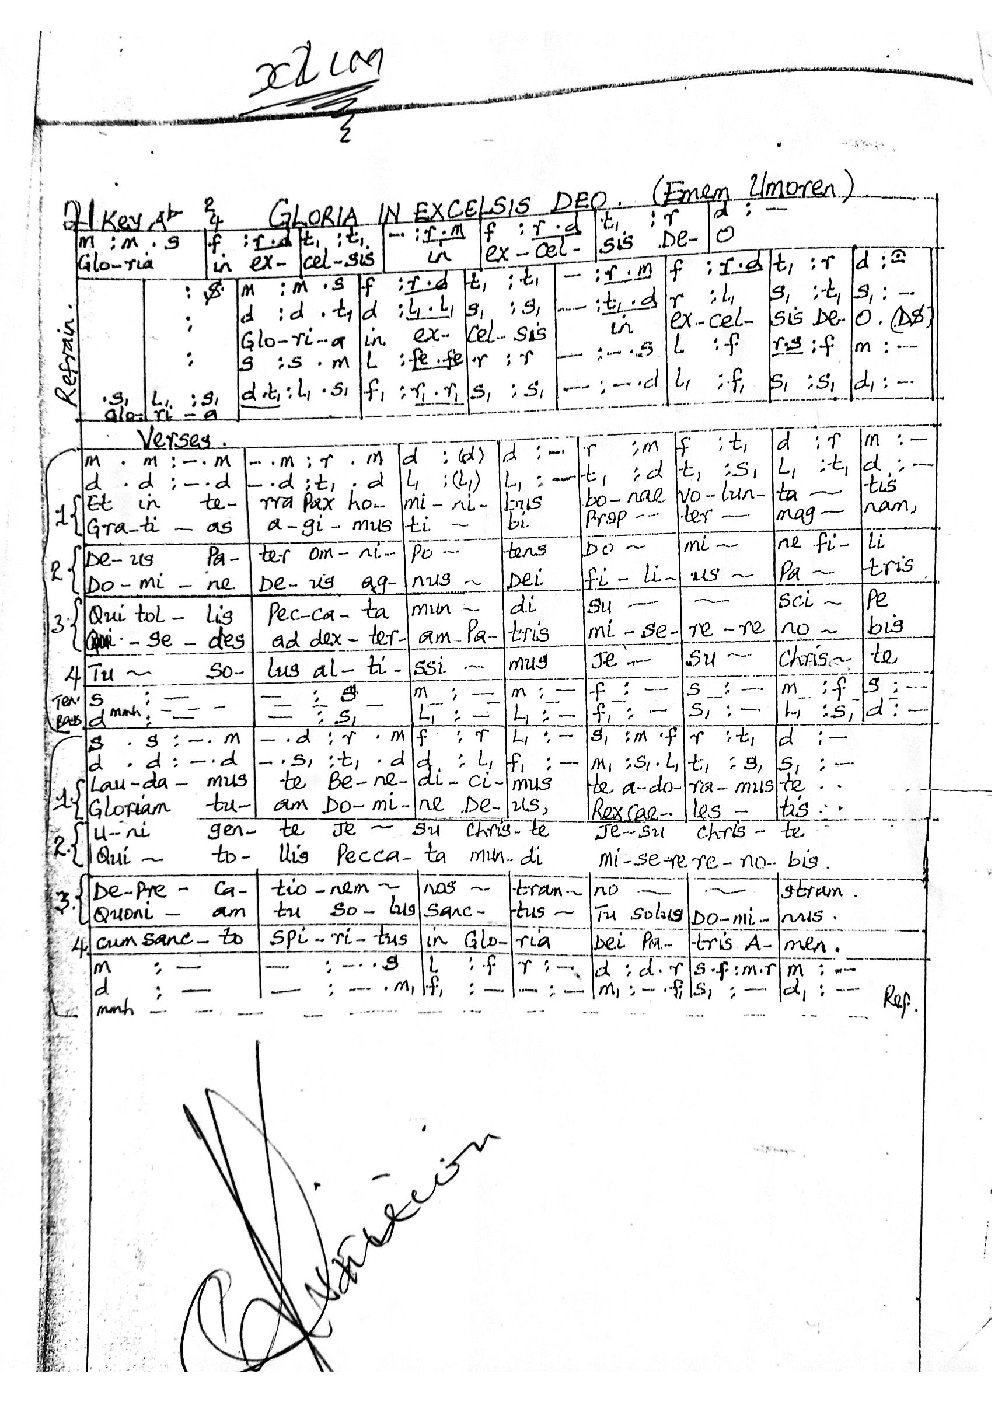 21 Key Ab 2/4 GLORIA IN EXCELSIS DEO. (Emem Umoren)
m : m . s | f : r . d | t, : t, | - : r . m | f : r . d | t, : r | d : -
Glo-ria in ex- cel-sis in ex-cel- sis De- O
: S | m : m . s | f : r . d | t, : t, | - : r . m | f : r . d | t, : r | d :
: | d : d . t, | d : L, . L, | s, : s, | - : t, . d | r : L, | s, : t, | s, : -
Glo-ri-a in ex- cel-sis in ex-cel- sis De- O. (DS)
Refrain.
: | s : s . m | L : fe . fe | r : r | - : - . s | L : f | r.s : f | m : -
. s, | L, : s, | d.t, : L, . s, | f, : r, . r, | s, : s, | - : - . d | L, : f, | s, : s, | d, : -
Glo-ri-a
Verses.
m . m : - . m | - . m : r . m | d : (d) | d : - | r : m | f : t, | d : r | m : -
d . d : - . d | - . d : t, . d | L, : (L,) | L, : - | t, : d | t, : s, | L, : t, | d : -
1 Et in te- rra Pax ho- mi-ni- bus bo-nae vo-lun- ta ~ tis
Gra-ti-as a-gi-mus ti ~ bi Prop ~ ter ~ mag ~ nam,
2 De-us Pa- ter om-ni- po ~ tens Do ~ mi ~ ne fi- li
Do-mi-ne De-us ag- nus ~ Dei fi-li-us ~ Pa - tris
3 Qui tol-lis Pec-ca-ta mun ~ di su ~ ~ sci ~ pe
Qui-se-des ad dex-ter-am-Pa-tris mi-se-re-re no ~ bis
4 Tu ~ so- lus al-ti-ssi ~ mus Je ~ su ~ Chris ~ te
Ten. s : - | - : s | m : - | m : - | f : - | s : - | m : f | s : -
Bass d mmh : - | - : s, | L, : - | L, : - | f, : - | s, : - | L, : s, | d : -
s . s : - . m | - . d : r . m | f : r | L, : - | s, : m . f | r : t, | d : -
d . d : - . d | - . s, : t, . d | d : L, | f, : - | m, : s, . L, | t, : s, | s, : -
1. Lau-da-mus te Be-ne-di-ci-mus te a-do-ra-mus te . .
Gloriam tu- am Do-mi-ne De-us, Rex cae-les-tis . .
2. U-ni gen-te Je ~ su Chris-te Je-su Chris-te
Qui ~ to-llis Pecca-ta mun-di mi-se-re re-no-bis.
3. De-pre-ca-tio-nem ~ nos ~ tram ~ no ~ ~ stram.
Quoni-am tu so-lus Sanc-tus ~ Tu Solus Do-mi-nus.
4 cum Sanc-to Spi-ri-tus in Glo-ria Dei Pa-tris A-men.
m : - | - : - . s | L : f | r : - | d : d . r | s . f : m . r | m : -
d : - | - : - . m, | f, : - | - : - | m, : - . f, | s, : - | d, : -
mmh - - - - Ref.